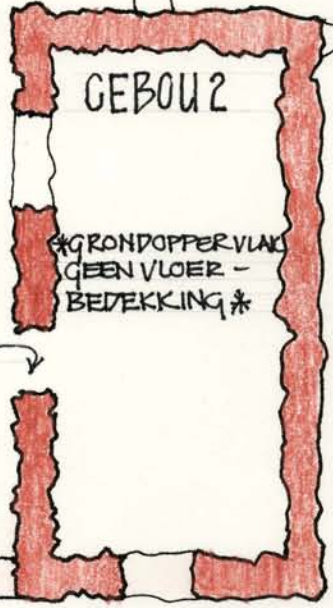 GEBOU 2
*GRONDOPPERVLAK
GEEN VLOER-
BEDEKKING*